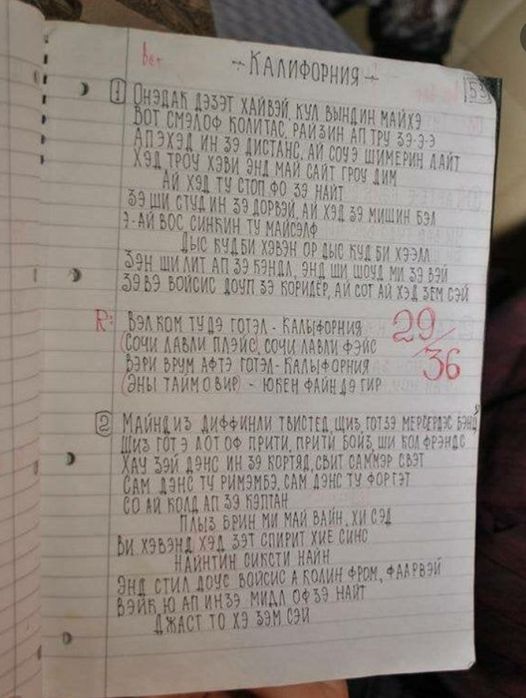 Вег
КАЛИФОРНИЯ
53
1 ОНЭДАК ДЭЗЭТ ХАЙВЭЙ, КУЛ ВЫНДИН МАЙХЭ
ВОТ СМЭЛОФ КОЛИТАС, РАЙЗИН АП ТРУ ЗЭ-Э-Э
АПЭХЭД ИН ЗЭ ДИСТАНС, АЙ СОУЭ ШИМЕРИН ЛАЙТ
ХЭД ГРОУ ХЭВИ ЭНД МАЙ САЙТ ГРОУ ДИМ
АЙ ХЭД ТУ СТОП ФО ЗЭ НАЙТ
ЗЭ ШИ СТУД ИН ЗЭ ДОРВЭЙ, АЙ ХЭД ЗЭ МИШИН БЭЛ
Э-АЙ ВОС СИНКИН ТУ МАЙСЭЛФ
ДЫС КУД БИ ХЭВЭН ОР ДЫС КУД БИ ХЭЭЛЛ
ЗЭН ШИ ЛИТ АП ЗЭ КЭНДЛ, ЭНД ШИ ШОУД МИ ЗЭ ВЭЙ
ЗЭВЭ ВОЙСИС ДОУП ЗЭ КОРИДЁР, АЙ СОТ АЙ ХЭД ЗЕМ СЭЙ
R: ВЭЛКОМ ТУ ДЭ ГОТЭЛ - КАЛЫФОРНИЯ
(СОЧИ ЛАВЛИ ПЛЭЙС), СОЧИ ЛАВЛИ ФЭЙС
ВЭРИ ВРУМ АФТЭ ГОТЭЛ - КАЛЫФОРНИЯ
(ЭНЫ ТАЙМ О ВИР) - ЮКЕН ФАЙН ДЭ ГИР
29/36
2 МАЙНД ИЗ ДИФФИНЛИ ТВИСТЕД, ШИЗ ГОТ ЗЭ МЕРСЕРДЭС БЭНЦ
ШИЗ ГОТ Э ЛОТ ОФ ПРИТИ, ПРИТИ БОЙЗ, ШИ КОЛ ФРЭНДС
ХАУ ЗЭЙ ДЭНС ИН ЗЭ КОРТЯД, СВИТ САММЭР СВЭТ
САМ ДЭНС ТУ РИМЭМБЭ, САМ ДЭНС ТУ ФОРГЭТ
СО АЙ КОЛД АП ЗЭ КЭПТАН
ПЛЫЗ БРИН МИ МАЙ ВАЙН, ХИ СЭД
ВИ ХЭВЭНД ХЭД ЗЭТ СПИРИТ ХИЕ СИНС
НАЙНТИН СИКСТИ НАЙН
ЭНД СТИЛ ДОУС ВОЙСИС А КОЛИН ФРОМ, ФААРВЭЙ
ВЭЙК Ю АП ИН ЗЭ МИДЛ ОФ ЗЭ НАЙТ
ДЖАСТ ТО ХЭ ЗЭМ СЭЙ